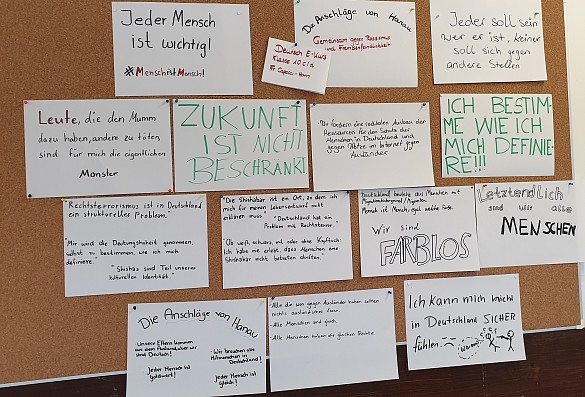 Jeder Mensch
ist wichtig!
#MenschistMensch!
Die Anschläge von Hanau
Gemeinsam gegen Rassismus
und Fremdenfeindlichkeit
Deutsch E-Kurs
Klasse 10 c
Fr.
Jeder soll sein
wer er ist, keiner
soll sich gegen
andere Stellen
Leute, die den Mumm
dazu haben, andere zu töten,
sind für mich die eigentlichen
Monster
ZUKUNFT
IST NICHT
BESCHRÄNKT
Wir fordern eine radikalen Ausbau der
Ressourcen für den Schutz der
Menschen in Deutschland und
gegen Hetze im Internet gegen
Ausländer
ICH BESTIM-
ME WIE ICH
MICH DEFINIE-
RE!!!
Rechtsterrorismus ist in Deutschland
ein strukturelles Problem.
"Mir wird die Deutungshoheit genommen,
selbst zu bestimmen, wie ich mich
definiere."
"Shishas sind Teil unserer
kulturellen Identität."
"Die Shishabar ist ein Ort, an dem ich
mich für meinen Lebensentwurf nicht
erklären muss."
"Deutschland hat ein
Problem mit Rechtsterror."
"Ob weiß, schwarz, mit oder ohne Kopftuch:
Ich habe nie erlebt, dass Menschen eine
Shishabar nicht betreten durften."
Deutschland besteht aus Menschen mit
Migrationshintergrund/Migranten
Mensch ist Mensch, egal welche Farbe
Wir sind
FARBLOS
Letztendlich
sind wir alle
MENSCHEN
Die Anschläge von
Hanau
- Unsere Eltern kommen
aus dem Ausland, aber wir
sind Deutsch!
Jeder Mensch ist
gleichwert!
- Wir brauchen alle
Mitmenschen in
Deutschland!
Jeder Mensch ist
gleich!
- Alle die was gegen Ausländer haben sollten
nichts ausländisches
- Alle Menschen sind gleich.
- Alle Menschen haben die gleichen Rechte.
Ich kann mich nicht
in Deutschland SICHER
fühlen.